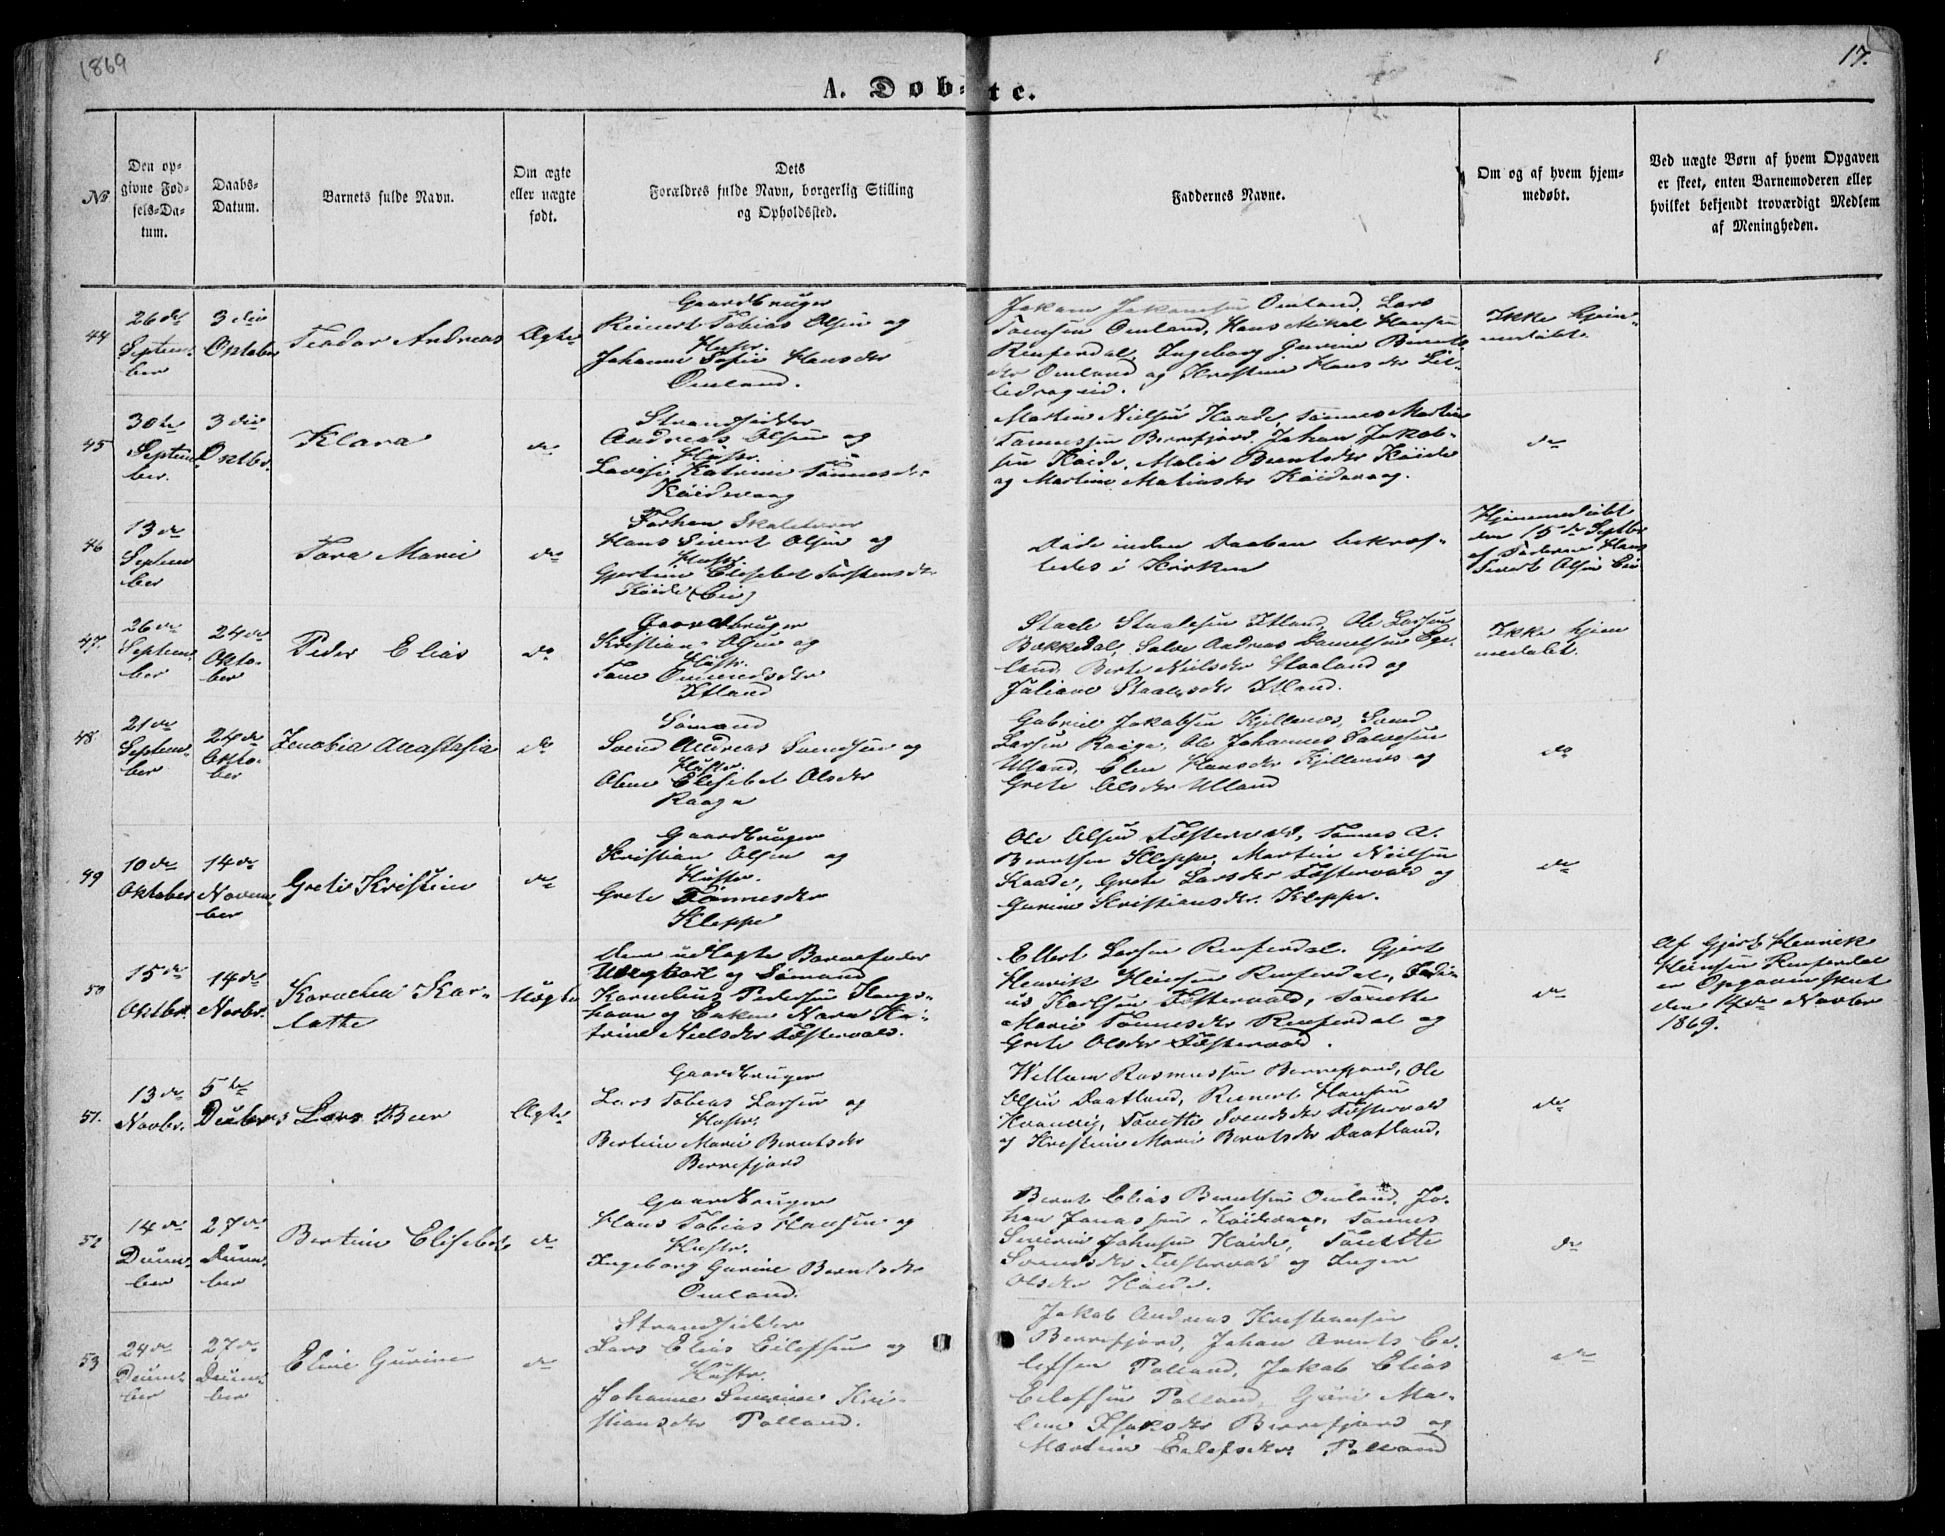 1869
17.
A. Døbte.
No
Den op-
givne Fød-
sels-Da-
tum.
Daabs-
Datum.
Barnets fulde Navn.
Om ægte
eller uægte
født.
Dets
Forældres fulde Navn, borgerlig Stilling
og Opholdssted.
Faddernes Navne.
Om og af hvem hjem-
medøbt.
Ved uægte Børn af hvem Opgaven
er skeet, enten Barnemoderen eller
hvilket bekjendt troværdigt Medlem
af Meningheden.
44
26de
Septem-
ber
3die
Oktober
Teodor Andreas
Ægte
Gaardbruger
Reinert Tobias Olsen og
Hustr.
Johanne Sofie Hansdtr
Omland.
Jakam Jakamsen Omland, Lars
Tønnesen Omland, Hans Mikal Hansen
Renferdal, Ingeborg Gurine Bernts-
dtr Omland og Kristine Hansdtr Lil-
ledragseid.
Ikke hjem-
medøbt.
45
30te
Septem-
ber.
3die
Oktbr.
Klara
do
Strandsidder
Andreas Olsen og
Hustr.
Lovise Katrine Tønnesdtr
Høidevaag
Martin Nielsen Høide, Tønnes Martin
Tønnessen Berrefjord, Johan Jakob-
sen Høide, Malin Berntsdtr Høide
og Martine Matiasdtr Høidevaag.
do
46
13de
Septem-
ber
Tara Marie
do
Forhen Skolelærer
Hans Sivert Olsen og
Hustr.
Gjertine Elisebet Torstensdtr
Høide (Eie)
Døde inden Daaben bekræf-
tedes i Kirken
Hjemmedøbt
den 15de Septbr
af Faderen Hans
Sivert Olsen Eie
47.
26de
Septem-
ber
24de
Okto-
ber
Peder Elias
do
Gaardbruger
Kristian Olsen og
Hustr.
Tone Ommundsdtr
Itland
Staale Staalesen Itland, Ole Larsen
Bækkedal, Salve Andreas Danielsen Ege-
land, Berte Nielsdtr Haaland og
Juliane Staalesdtr Itland.
Ikke hjem-
medøbt.
48.
21de
Septem-
ber
24de
Okto-
ber
Zenobia Anastasia
do
Sømand
Svend Andreas Svendsen og
Hustr.
Olene Elisebet Olsdtr
Raage
Gabriel Jakobsen Kjellenes, Svend
Larsen Raage, Ole Johannes Salvesen
Ulland, Elen Hansdtr Kjellenes og
Grete Olsdtr Ulland
do
49
10de
Oktober
14de
Novem-
ber
Grete Kristine
do
Gaardbruger
Kristian Olsen og
Hustr.
Grete Tønnesdtr
Kleppe
Ole Olsen Tæstervold, Tønnes A.
Berntsen Kleppe, Martin Nielsen
Kaade, Grete Larsdtr Tæstervold og
Gurine Kristiansdtr. Kleppe.
do
50
15de
Oktbr.
14de
Novbr.
Kornelia Kar-
lotte
Uægte
Den udlagte Barnefader
Ungkarl og Sømand
Kornelius Pedersen Konge-
havn og Enken Nora Ka-
trine Nielsdtr Tæstervold.
Ellert Larsen Renferdal. Gjert
Henrik Heinsen Renferdal,
Karlsen Tæstervold, Tonette
Marie Tønnesdtr Renferdal og
Grete Olsdtr Tæstervold.
do
Af Gjert Henrik
Heinsen Renferdal
er Opgaven skeet
den 14de Novbr
1869.
51.
13de
Novbr.
5te
Decbr.
Lars Beer
Ægte
Gaardbruger
Lars Tobias Larsen og
Hustr.
Bertine Marie Berntsdtr
Berrefjord
Willum Rasmussen Berrefjord, Ole
Olsen Daatland, Reinert Hansen
Kvanvig, Tonette Svendsdtr Tæstervold
og Kristine Marie Berntsdtr Daatland.
do
52
14de
Decem-
ber
27de
Decem-
ber
Bertine Elisebet
do
Gaardbruger
Hans Tobias Hansen og
Hustr.
Ingeborg Gurine Berntsdtr
Omland.
Bernt Elias Berntsen Omland, Jo-
han Jonassen Høidevaag, Tønnes
Severin Johnsen Høide, Tonette
Svendsdtr Tæstervold og Inger
Olsdtr Høide.
do
53
24de
Decem-
ber
27de
Decem-
ber
Eline Gurine
do
Strandsidder
Lars Elias Eilefsen og
Hustr.
Johanne Severine Kri-
stiansdtr Polland.
Jakob Andreas Kristensen
Berrefjord, Johan Arents Ei-
lefsen Polland, Jakob Elias
Eilefsen Polland, Guri Ma-
lene Isaksdtr Berrefjord og
Martine Eilefsdtr. Polland
do